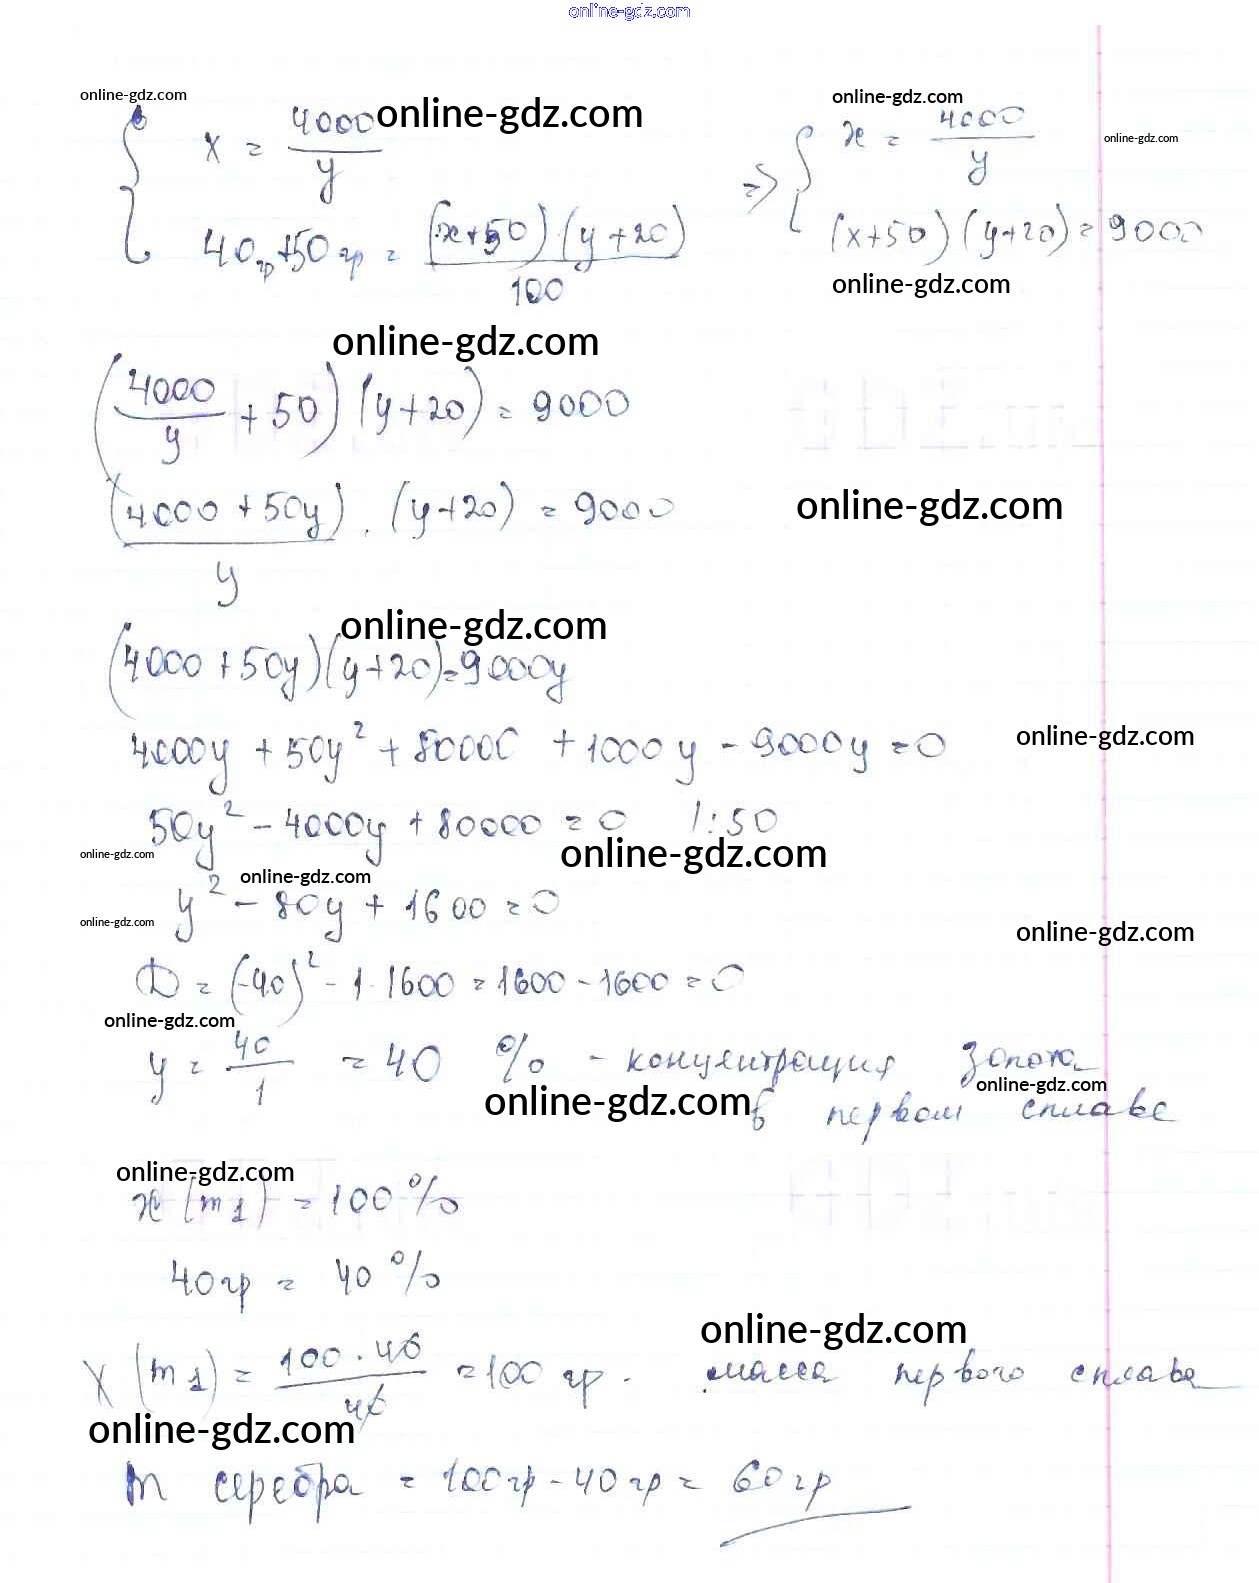 online-gdz.com
online-gdz.com
x = 4000/y
online-gdz.com
40гр+50гр = (x+50)(y+20)/100
online-gdz.com
=> x = 4000/y
online-gdz.com
(x+50)(y+20)=9000
online-gdz.com
online-gdz.com
(4000/y + 50)(y+20) = 9000
(4000+50y)/y · (y+20) = 9000
online-gdz.com
online-gdz.com
(4000+50y)(y+20)=9000y
4000y + 50y² + 80000 + 1000y - 9000y = 0
online-gdz.com
50y² - 4000y + 80000 = 0 |:50
online-gdz.com
online-gdz.com
online-gdz.com
y² - 80y + 1600 = 0
online-gdz.com
online-gdz.com
D = (-40)² - 1·1600 = 1600 - 1600 = 0
online-gdz.com
y = 40/1 = 40 % - концентрация золота
online-gdz.com
online-gdz.com
в первом сплаве
online-gdz.com
x (m1) = 100%
40гр = 40%
online-gdz.com
x (m1) = 100·40/40 = 100 гр. масса первого сплава
online-gdz.com
m серебра = 100гр - 40гр = 60гр